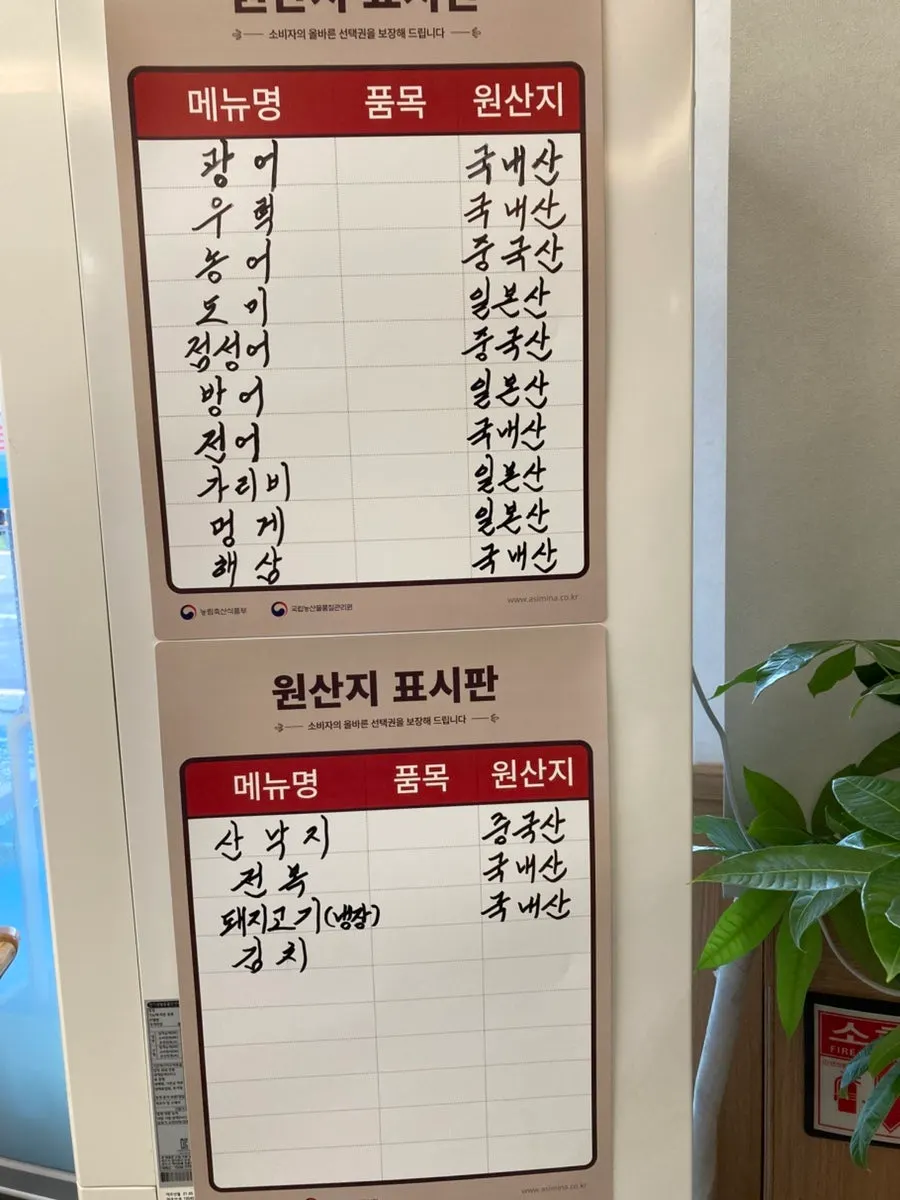 원산지 표시판
소비자의 올바른 선택권을 보장해 드립니다
메뉴명 품목 원산지
광어 국내산
우럭 국내산
농어 중국산
도미 일본산
점성어 중국산
방어 일본산
전어 국내산
가리비 일본산
멍게 일본산
해삼 국내산
농림축산식품부 국립농산물품질관리원 www.asimina.co.kr
원산지 표시판
소비자의 올바른 선택권을 보장해 드립니다
메뉴명 품목 원산지
산낙지 중국산
전복 국내산
돼지고기(냉장) 국내산
김치
www.asimina.co.kr
소
FIRE